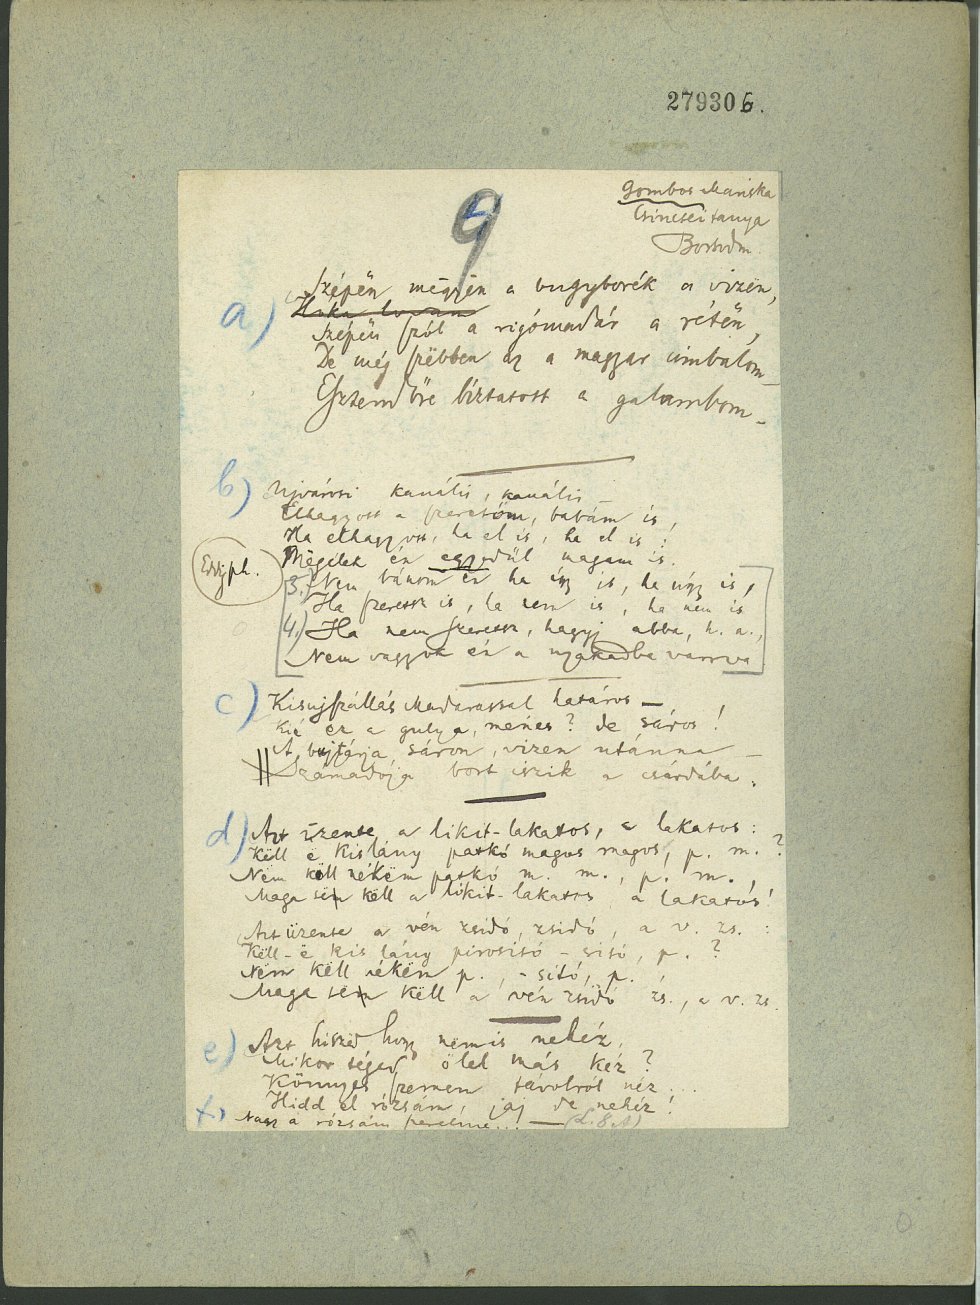 279306.
9
Gombos Mariska
Csincsei tanya
Borsodm.
a) Szépën mëgyën a bugyborék a vizën,
Szépën szól a rigómadár a rétën,
De még szëbben az a magyar cimbalom –
Esztendőre biztatott a galambom –
b) Ujvárosi kanális, kanális –
Elhagyott a szeretőm, babám is,
Ha elhagyott, ha el is, ha el is :
Mëgélek én egyedül magam is.
Edisph.
3.) Nem bánom én ha így is, ha úgy is,
Ha szeretsz is, ha nem is, ha nem is
4.) Ha nem szeretsz, hagyj abba, h. a.,
Nem vagyok én a nyakadba varrva
c) Kisujszállás Madarassal határos –,
Kié ez a gulya, ménes? de sáros!
A bujtárja sáron, vizen utánna –
Számadója bort iszik a csárdába.
d) Azt üzente a likit-lakatos, a lakatos :
Këll ë kislány patkó magos magos, p. m. ?
Nëm këll nékëm patkó m. m., p. m.,
Maga sëm këll a likit-lakatos, a lakatos!
Azt üzente a vén zsidó, zsidó, a v. zs. :
Këll-ë kis lány pirositó – sitó, p. ?
Nëm këll nékëm p., – sitó, p.,
Maga sëm këll a vén zsidó zs., a v. zs.
e) Azt hiszed hogy nem is nehéz,
Mikor téged ölel más kéz ?
Könnyes szemem távolról néz...
Hidd el rózsám, jaj de nehéz!
f) Nagy a rózsám szerelme... –